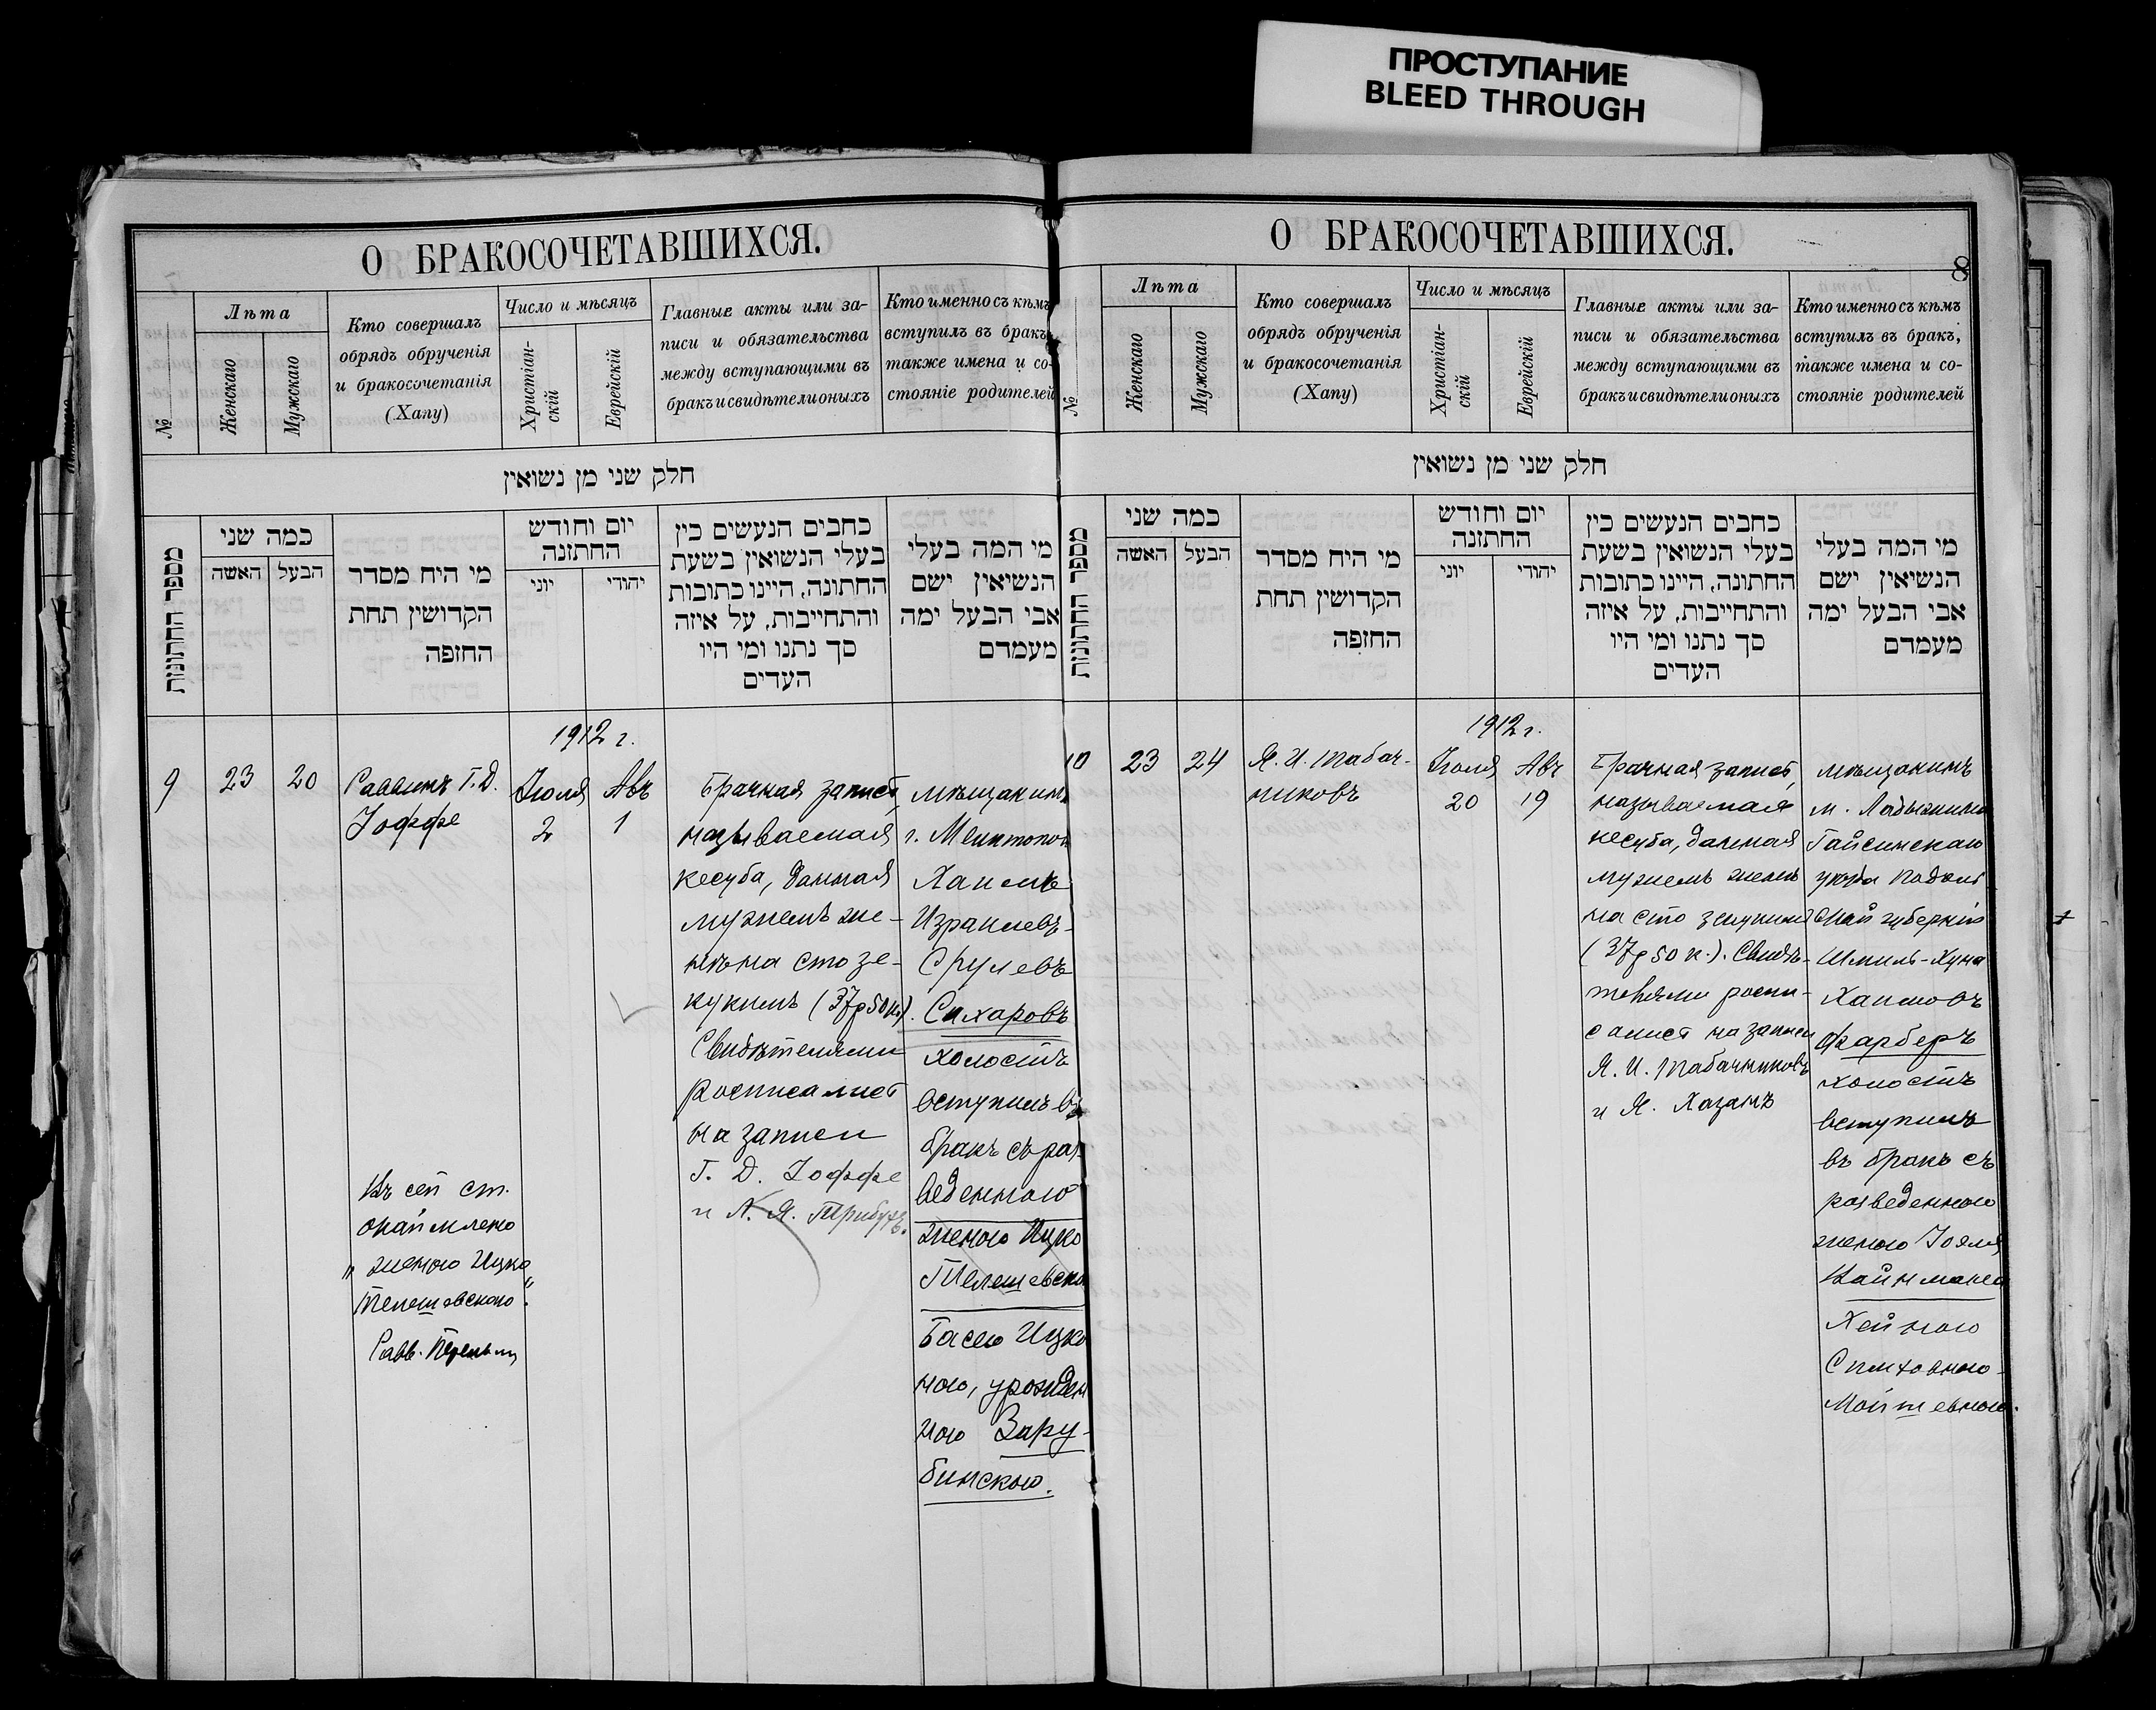 ПРОСТУПАНИЕ
BLEED THROUGH
О БРАКОСОЧЕТАВШИХСЯ.
№
Лѣта
Женскаго
Мужскаго
Кто совершалъ
обрядъ обрученія
и бракосочетанія
(Хапу)
Число и мѣсяцъ
Христіан-
скій
Еврейскій
Главные акты или за-
писи и обязательства
между вступающими въ
бракъ и свидѣтели оныхъ
Кто именно съ кѣмъ
вступилъ въ бракъ,
также имена и со-
стояніе родителей
חלק שני מן נשואין
מספר החתונות
כמה שני
האשה
הבעל
מי היח מסדר
הקדושין תחת
החזפה
יום וחודש
החתזנה
יוני
יהודי
כחבים הנעשים כין
בעלי הנשואין בשעת
החתונה, היינו כתובות
והתחייבות, על איזה
סך נתנו ומי היו
העדים
מי המה בעלי
הנשיאין ישם
אבי הבעל ימה
מעמדם
1912 г.
9
23
20
Раввинъ Г. Д.
Іоффе
Іюля
2
Авъ
1
Брачная запись,
называемая
кесуба, данная
мужемъ же-
нѣ на сто зе-
кукимъ (37р50к).
Свидѣтелями
росписались
на записи
Г. Д. Іоффе
и Я. Трибухъ.
мѣщанинъ
г. Мелитополя
Хаимъ
Израилевъ-
Срулевъ
Сахаровъ
холостъ
вступилъ въ
бракъ съ раз-
веденною
женою Ицко
Телешевско
Басею Ицко
ною, урожден
ною Зару-
бинскою.
Къ сей ст.
„женою Ицко
Телешевскаго“.
Равв.
О БРАКОСОЧЕТАВШИХСЯ.
8
№
Лѣта
Женскаго
Мужскаго
Кто совершалъ
обрядъ обрученія
и бракосочетанія
(Хапу)
Число и мѣсяцъ
Христіан-
скій
Еврейскій
Главные акты или за-
писи и обязательства
между вступающими въ
бракъ и свидѣтели оныхъ
Кто именно съ кѣмъ
вступилъ въ бракъ,
также имена и со-
стояніе родителей
חלק שני מן נשואין
מספר החתונות
כמה שני
האשה
הבעל
מי היח מסדר
הקדושין תחת
החזפה
יום וחודש
החתזנה
יוני
יהודי
כחבים הנעשים כין
בעלי הנשואין בשעת
החתונה, היינו כתובות
והתחייבות, על איזה
סך נתנו ומי היו
העדים
מי המה בעלי
הנשיאין ישם
אבי הבעל ימה
מעמדם
1912 г.
10
23
24
Я. И. Табач-
никовъ
Іюля
20
Авъ
19
Брачная запись,
называемая
кесуба, данная
мужемъ женѣ
на сто зекукимъ
(37р 50 к.). Свидѣ-
телями роспи-
сались на записи
Я. И. Табачниковъ
и Я. Хазанъ
мѣщанинъ
м. Ладыжина
Гайсинскаго
уѣзда Подоль
ской губерніи
Шмиль-Хуна
Хаимовъ
Фарберъ
холостъ
вступилъ
въ бракъ съ
разведенною
женою Іоэля
Кайнмана
Хейною
Симховною-
Мойшевною.